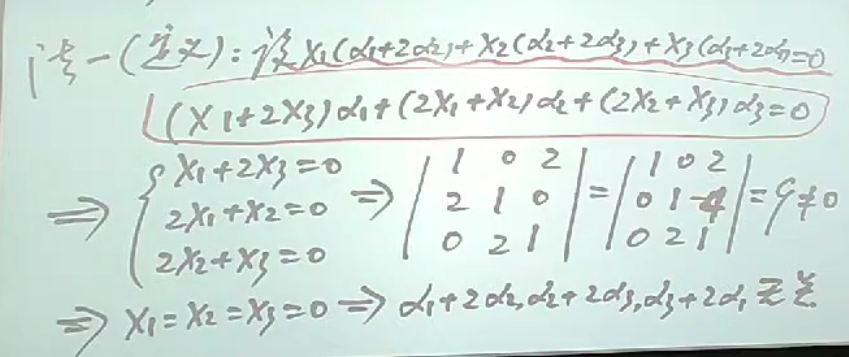 法一(定义):设x₁(α₁+2α₂)+x₂(α₂+2α₃)+x₃(α₃+2α₁)=0
(x₁+2x₃)α₁+(2x₁+x₂)α₂+(2x₂+x₃)α₃=0
⇒ { x₁+2x₃=0 ⇒ | 1 0 2 | = | 1 0 2 | = 9≠0
2x₁+x₂=0 | 2 1 0 | | 0 1 -4 |
2x₂+x₃=0 | 0 2 1 | | 0 2 1 |
⇒ x₁=x₂=x₃=0 ⇒ α₁+2α₂,α₂+2α₃,α₃+2α₁无关